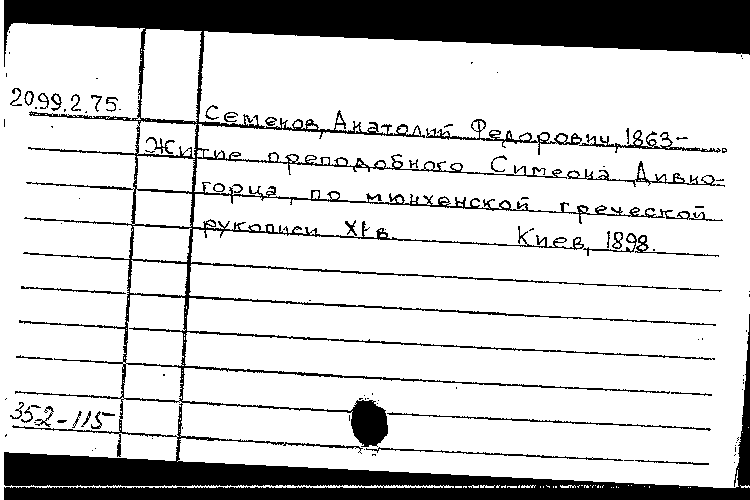 2099.2.75.
Семенов, Анатолий Федорович, 1863-
Житие преподобного Симеона Дивно-
горца, по мюнхенской греческой
рукописи XI в. Киев, 1898.
352-115